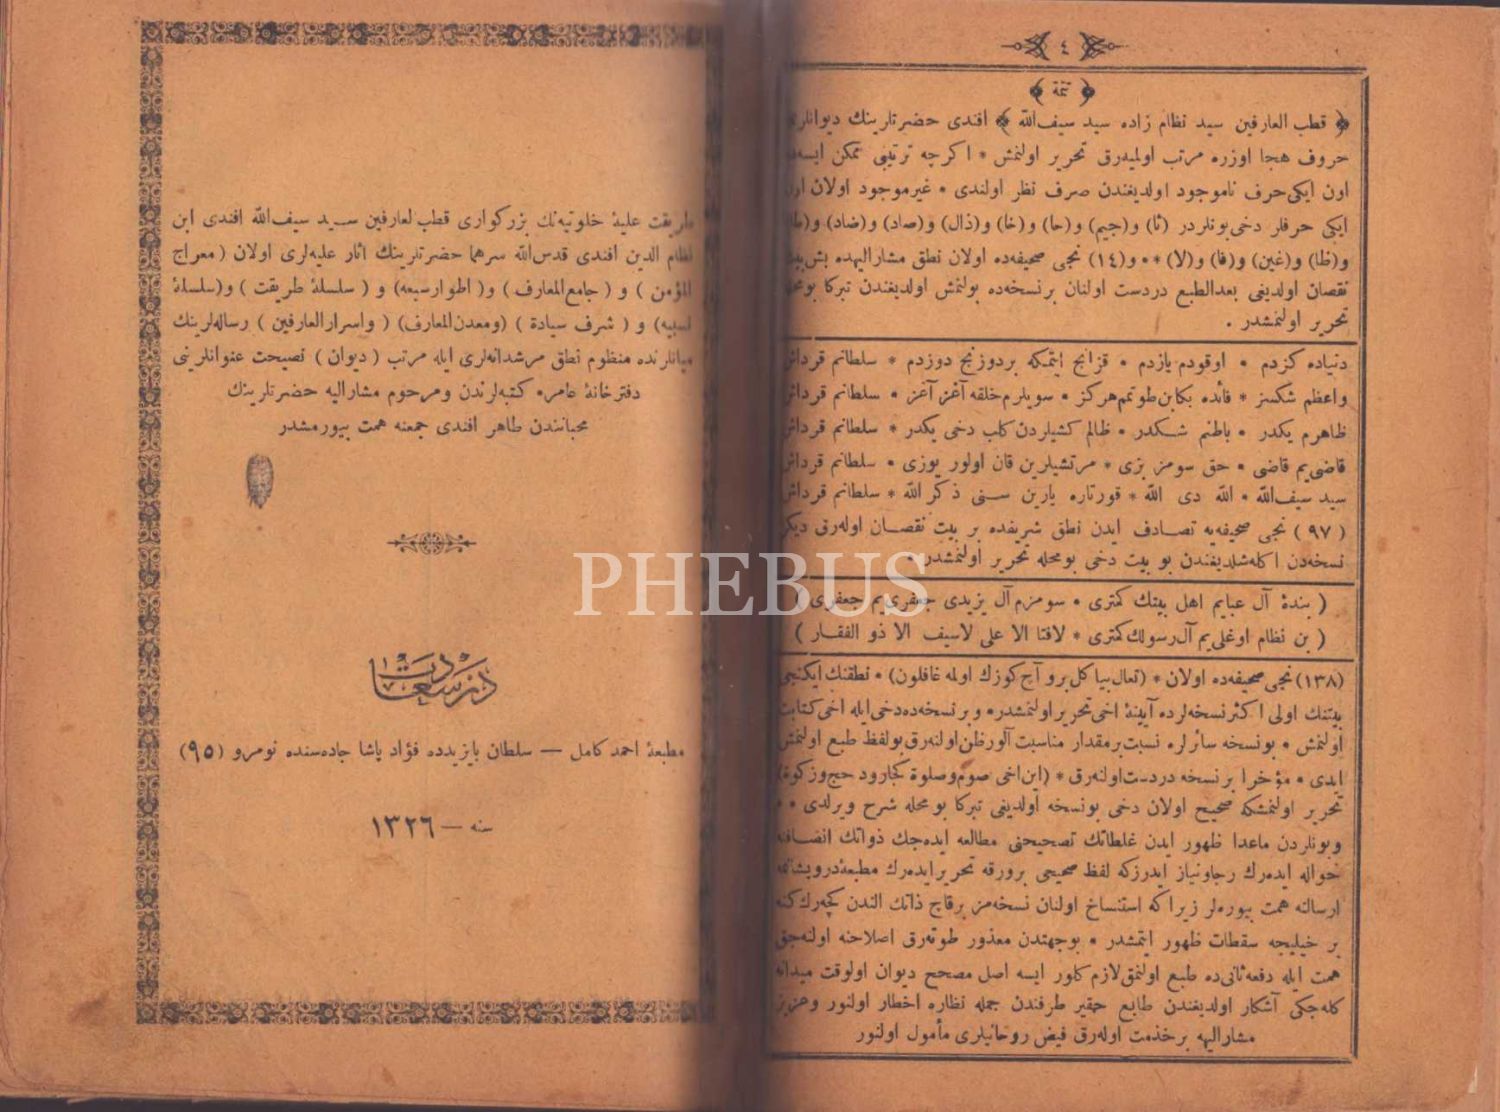 ٤
تتمه
﴿ قطب العارفين سيد نظام زاده سيد سيف‌الله ﴾ افندى حضرتلرينك ديوانلرى
حروف هجا اوزره مرتب اولميه‌رق تحرير اولنمش * اكرچه ترتيبى ممكن ايسه‌ده
اون ايكى حرف ناموجود اولديغندن صرف نظر اولندى * غيرموجود اولان اون
ايكى حرفلر دخى بونلردر (ثا) و(جيم) و(حا) و(خا) و(ذال) و(صاد) و(ضاد) و(طا)
و(ظا) و(غين) و(فا) و(لا) ** و(١٤) نجى صحيفه‌ده اولان نطق مشاراليهده بش بيت
نقصان اولديغى بعدالطبع دردست اولنان برنسخه‌ده بولنمش اولديغندن تبركا بومحله
تحرير اولنمشدر .
دنياده كزدم * اوقودم يازدم * قزانج ايتمكه بردوزنج دوزدم * سلطانم قرداش
واعظم شكسز * فائده بكابن طوتمم هركز * سويلرم خلقه آغز آغز * سلطانم قرداش
ظاهرم يكدر * باطنم شكدر * ظالم كشيلردن كلب دخى يكدر * سلطانم قرداش
قاضى‌يم قاضى * حق سومز بزى * مرتشيلرين قان اولور يوزى * سلطانم قرداش
سيد سيف‌الله * الله دى الله * قورتاره يارين سنى ذكر الله * سلطانم قرداش
(٩٧) نجى صحيفه‌يه تصادف ايدن نطق شريفده بر بيت نقصان اوله‌رق ديكر
نسخه‌دن اكله‌شلديغندن بو بيت دخى بومحله تحرير اولنمشدر *
( بندهٔ آل عبايم اهل بيتك كمترى * سومزم آل يزيدى جعفرى‌يم جعفرى )
( بن نظام اوغلى‌يم آل رسولك كمترى * لافتا الا على لاسيف الا ذو الفقار )
(١٣٨) نجى صحيفه‌ده اولان * (تعال بيا كل برو آچ كوزك اولمه غافلون) * نطقنك ايكنجى
بيتنك اولى اكثر نسخه‌لرده آيينهٔ اخى تحرير اولنمشدر* و برنسخه‌ده دخى ايله اخى كتابت
اولنمش * بونسخه سائرلره نسبت برمقدار مناسبت آلور ظن اولنه‌رق بولفظ طبع اولنمش
ايدى * مؤخرا برنسخه دردست اوله‌رق * (ابن اخى صوم وصلوة كجارود حج و زكوة)
تحرير اولنمشكه صحيح اولان دخى بونسخه اولديغى تبركا بومحله شرح ويرلدى * *
وبونلردن ماعدا ظهور ايدن غلطاتك تصحيحنى مطالعه ايده‌جك ذواتك انصافنه
حواله ايده‌رك رجا ونياز ايدرزكه لفظ صحيحى برورقه تحرير ايده‌رك مطبعهٔ درويشانه‌مه
ارسالنه همت بيوره‌لر زيرا كه استنساخ اولنان نسخه‌مز برقاچ ذاتك الندن كچه‌رك كنه
بر خيليجه سقطات ظهور ايتمشدر * بوجهتدن معذور طوته‌رق اصلاحنه اولنه‌جق
همت ايله دفعهٔ ثانى‌ده طبع اولنمق لازم كلور ايسه اصل مصحح ديوان اولوقت ميدانه
كله‌جكى آشكار اولديغندن طابع حقير طرفندن جمله نظاره اخطار اولنور وعزيز
مشاراليهه برخدمت اوله‌رق فيض روحانيلرى مأمول اولنور
طريقت عليهٔ خلوتيه‌نك بزركوارى قطب لعارفين سيد سيف‌الله افندى ابن
نظام الدين افندى قدس‌الله سرهما حضرتلرينك آثار عليه‌لرى اولان (معراج
المؤمن ) و ( جامع المعارف ) و( اطوار سبعه) و ( سلسلهٔ طريقت ) و(سلسلهٔ
نسبيه) و ( شرف سيادة ) (ومعدن المعارف) ( واسرار العارفين ) رساله‌لرينك
ميانلرنده منظوم نطق مرشدانه‌لرى ايله مرتب ( ديوان ) نصيحت عنوانلرينى
دفترخانهٔ عامره كتبه‌لرندن ومرحوم مشاراليه حضرتلرينك
محبانندن طاهر افندى جمعنه همت بيورمشدر
درسعادت
مطبعهٔ احمد كامل — سلطان بايزيدده فؤاد پاشا جاده‌سنده نومرو (٩٥)
سنه — ١٣٢٦
PHEBUS